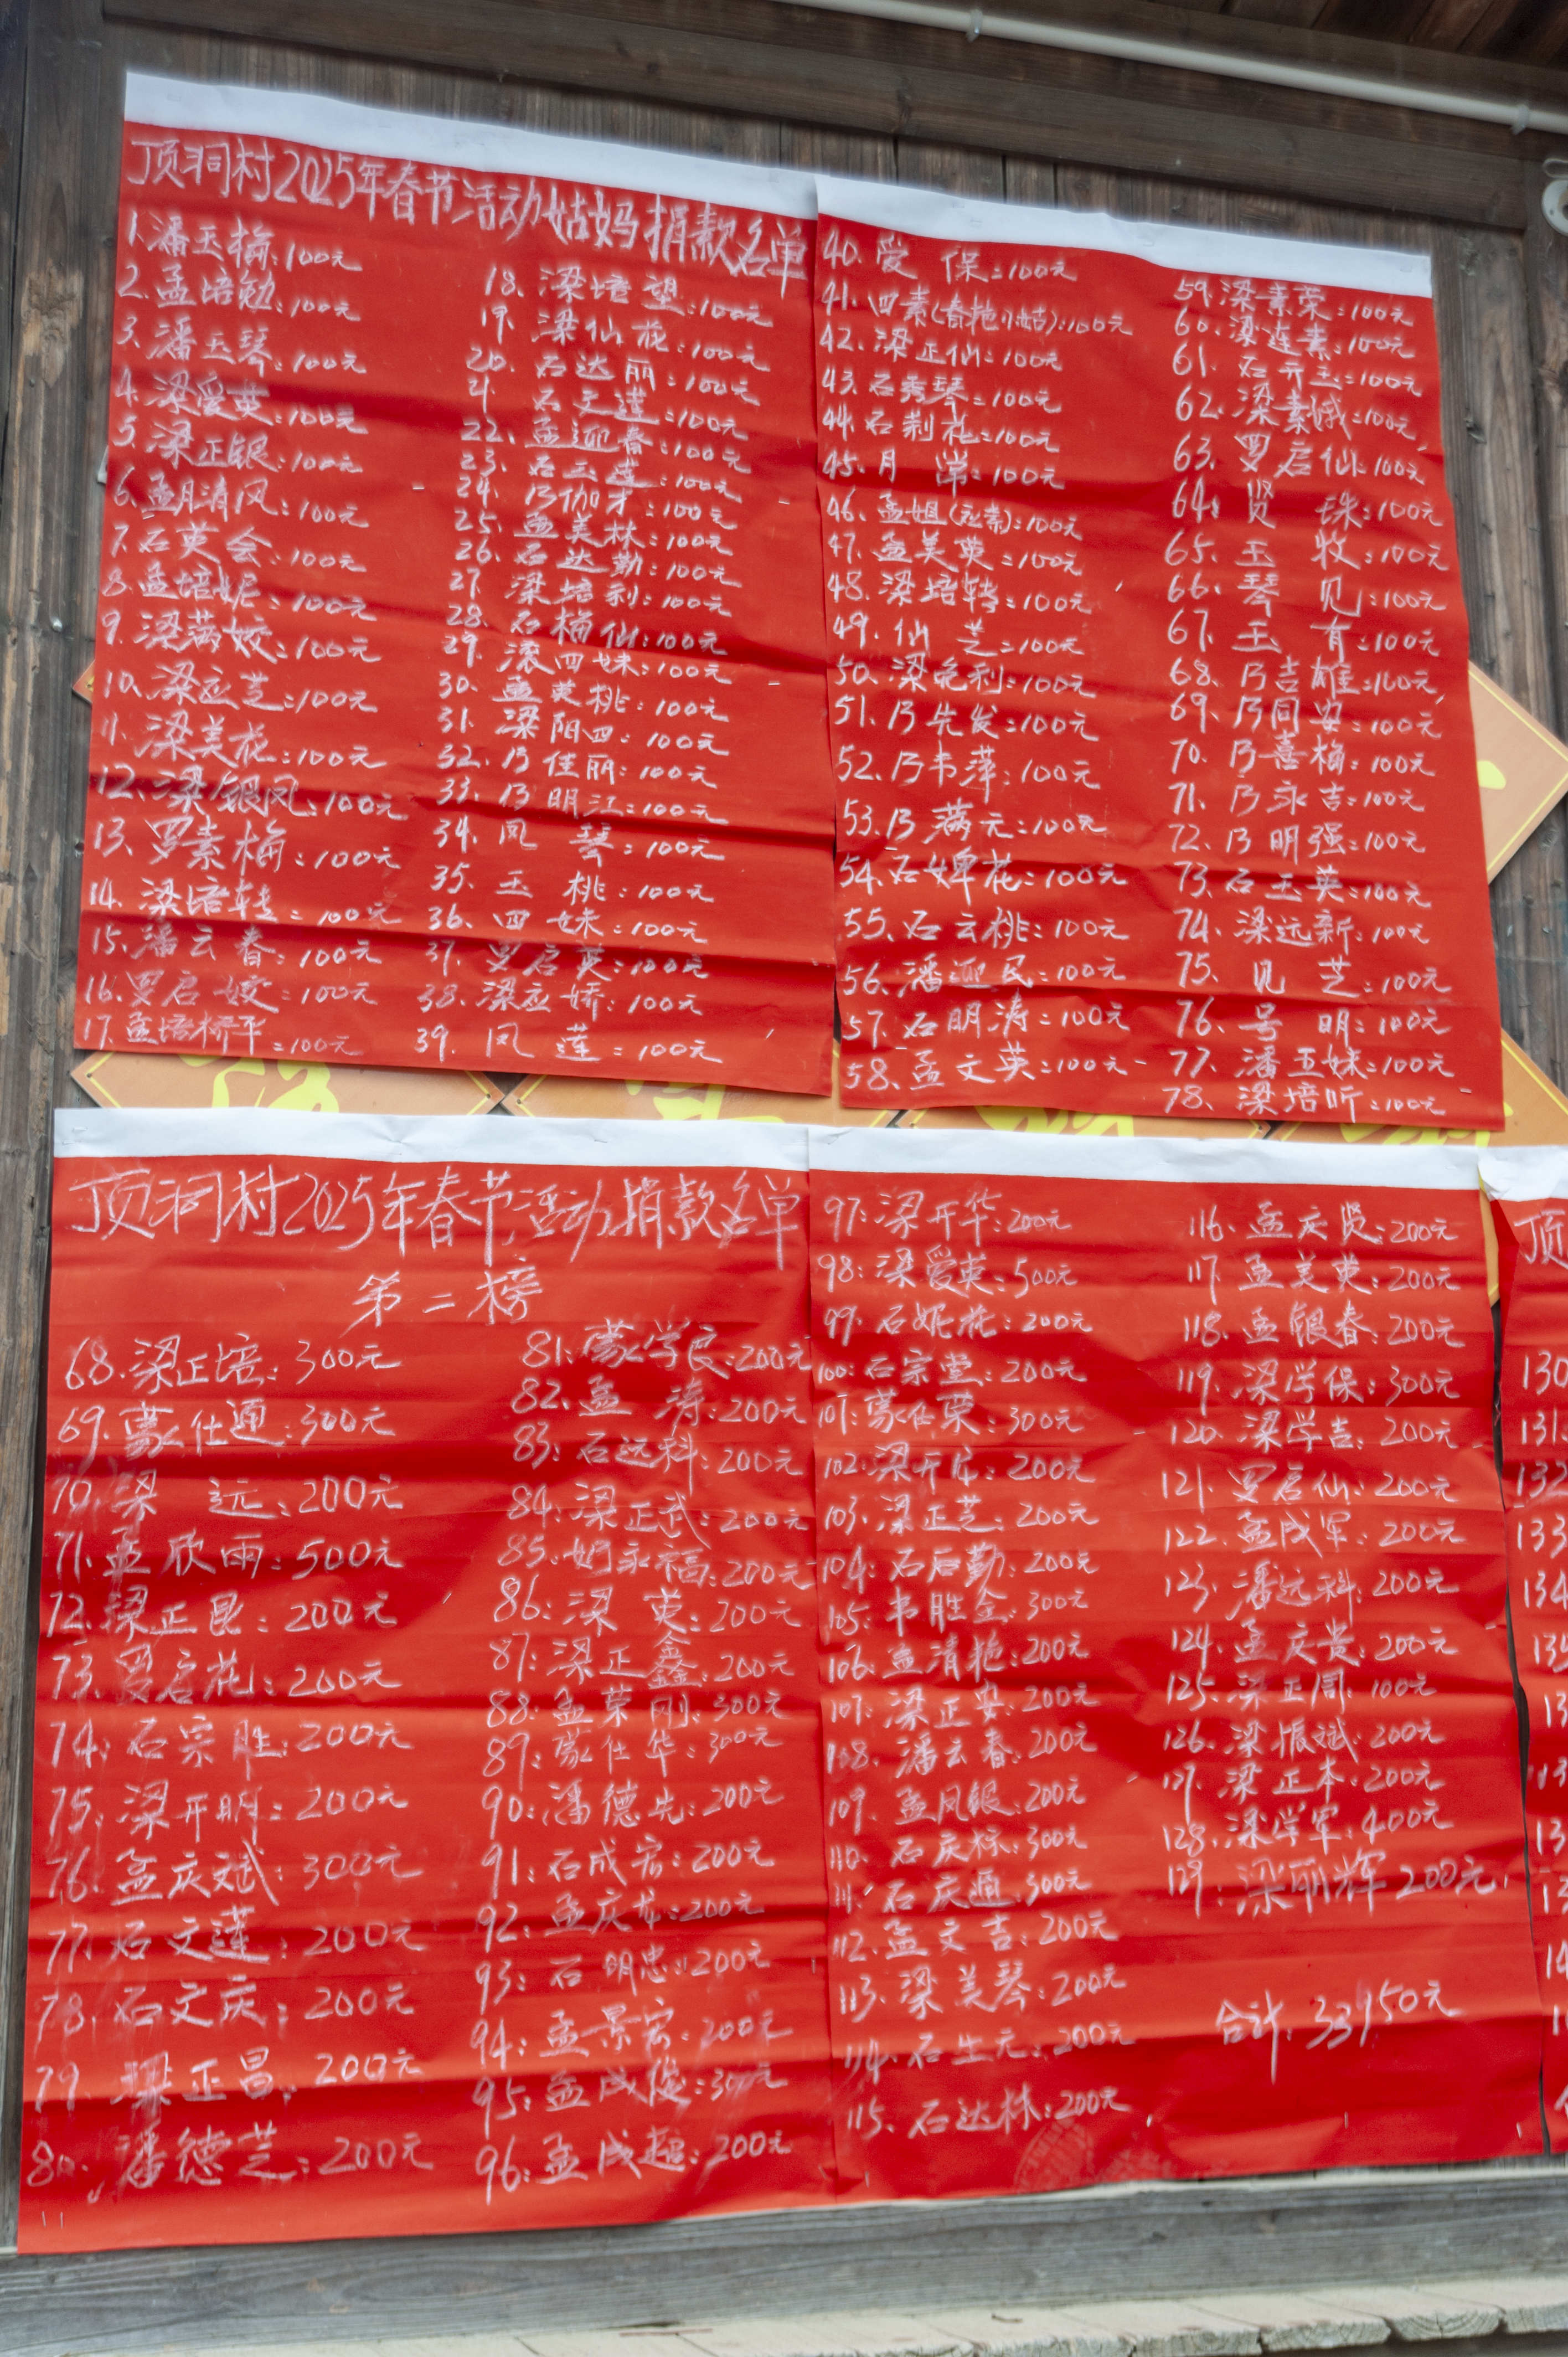 顶洞村2025年春节活动姑妈捐款名单
1.潘玉梅:100元
2.孟培勉:100元
3.潘玉琴:100元
4.梁爱英:100元
5.梁正银:100元
6.孟清凤:100元
7.石英会:100元
8.孟培妮:100元
9.梁满姣:100元
10.梁应芝:100元
11.梁美花:100元
12.梁银凤:100元
13.罗素梅:100元
14.梁培转:100元
15.潘云春:100元
16.罗启嫂:100元
17.孟培桥平:100元
18.梁培望:100元
19.梁仙花:100元
20.石达丽:100元
21.石文莲:100元
22.孟迎春:100元
23.石云莲:100元
24.乃伽才:100元
25.孟美林:100元
26.石达勤:100元
27.梁培利:100元
28.石梅仙:100元
29.滚四妹:100元
30.孟英桃:100元
31.梁阳四:100元
32.乃佳丽:100元
33.乃明江:100元
34.凤 琴:100元
35.玉 桃:100元
36.四 妹:100元
37.罗启英:100元
38.梁应娇:100元
39.凤 莲:100元
40.爱 保:100元
41.四素(春艳小姑):100元
42.梁正仙:100元
43.石秀琴:100元
44.石利礼:100元
45.月 :100元
46.孟姐():100元
47.孟美英:100元
48.梁培转:100元
49.仙 芝:100元
50.梁宪利:100元
51.乃先发:100元
52.乃韦萍:100元
53.乃满元:100元
54.石婢花:100元
55.石云桃:100元
56.潘迎民:100元
57.石明涛:100元
58.孟文英:100元
59.梁素荣:100元
60.梁连素:100元
61.石开玉:100元
62.梁素娥:100元
63.罗启仙:100元
64.贤 珠:100元
65.玉 牧:100元
66.琴 见:100元
67.玉 有:100元
68.乃吉雄:100元
69.乃同安:100元
70.乃喜梅:100元
71.乃永吉:100元
72.乃明强:100元
73.石玉英:100元
74.梁远新:100元
75.见 芝:100元
76.号 明:100元
77.潘玉妹:100元
78.梁培听:100元
顶洞村2025年春节活动捐款名单
第二榜
68.梁正培:300元
69.蒙仕通:300元
70.梁 远:200元
71.孟欣雨:500元
72.梁正昆:200元
73.罗启花:200元
74.石宗胜:200元
75.梁开明:200元
76.孟庆斌:300元
77.石文莲:200元
78.石文庆:200元
79.梁正昌:200元
80.潘德芝:200元
81.蒙学良:200元
82.孟 涛:200元
83.石远科:200元
84.梁正武:200元
85.永福:200元
86.梁 英:200元
87.梁正鑫:200元
88.孟荣刚:300元
89.蒙仕华:300元
90.潘德先:200元
91.石成宏:200元
92.孟庆龙:200元
93.石明忠:200元
94.孟景宏:200元
95.孟成俊:300元
96.孟成超:200元
97.梁开华:200元
98.梁爱英:500元
99.石妮花:200元
100.石宗堂:200元
101.蒙仕荣:300元
102.梁开:200元
103.梁正芝:200元
104.石后勤:200元
105.韦胜全:300元
106.孟清艳:200元
107.梁正安:200元
108.潘云春:200元
109.孟凤银:200元
110.石庆标:300元
111.石庆通:300元
112.孟文吉:200元
113.梁美琴:200元
114.石生元:200元
115.石达林:200元
116.孟庆贤:200元
117.孟美英:200元
118.孟银春:200元
119.梁学保:300元
120.梁学吉:200元
121.罗启仙:200元
122.孟成军:200元
123.潘远科:200元
124.孟庆贵:200元
125.梁正周:100元
126.梁振斌:200元
127.梁正本:200元
128.梁学军:400元
129.梁丽辉 200元
合计:33950元
顶
130
131
132
133
134